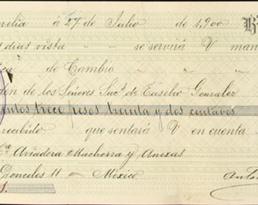 relia á 27 de Julio de 1,900 B
días vista se servirá V man
de Cambio
den de los Señores Suc.s de Eusebio Gonzalez
entos trece pesos treinta y dos centavos
recibido que sentará V en cuenta
Anexas
Gonzales 11 = México